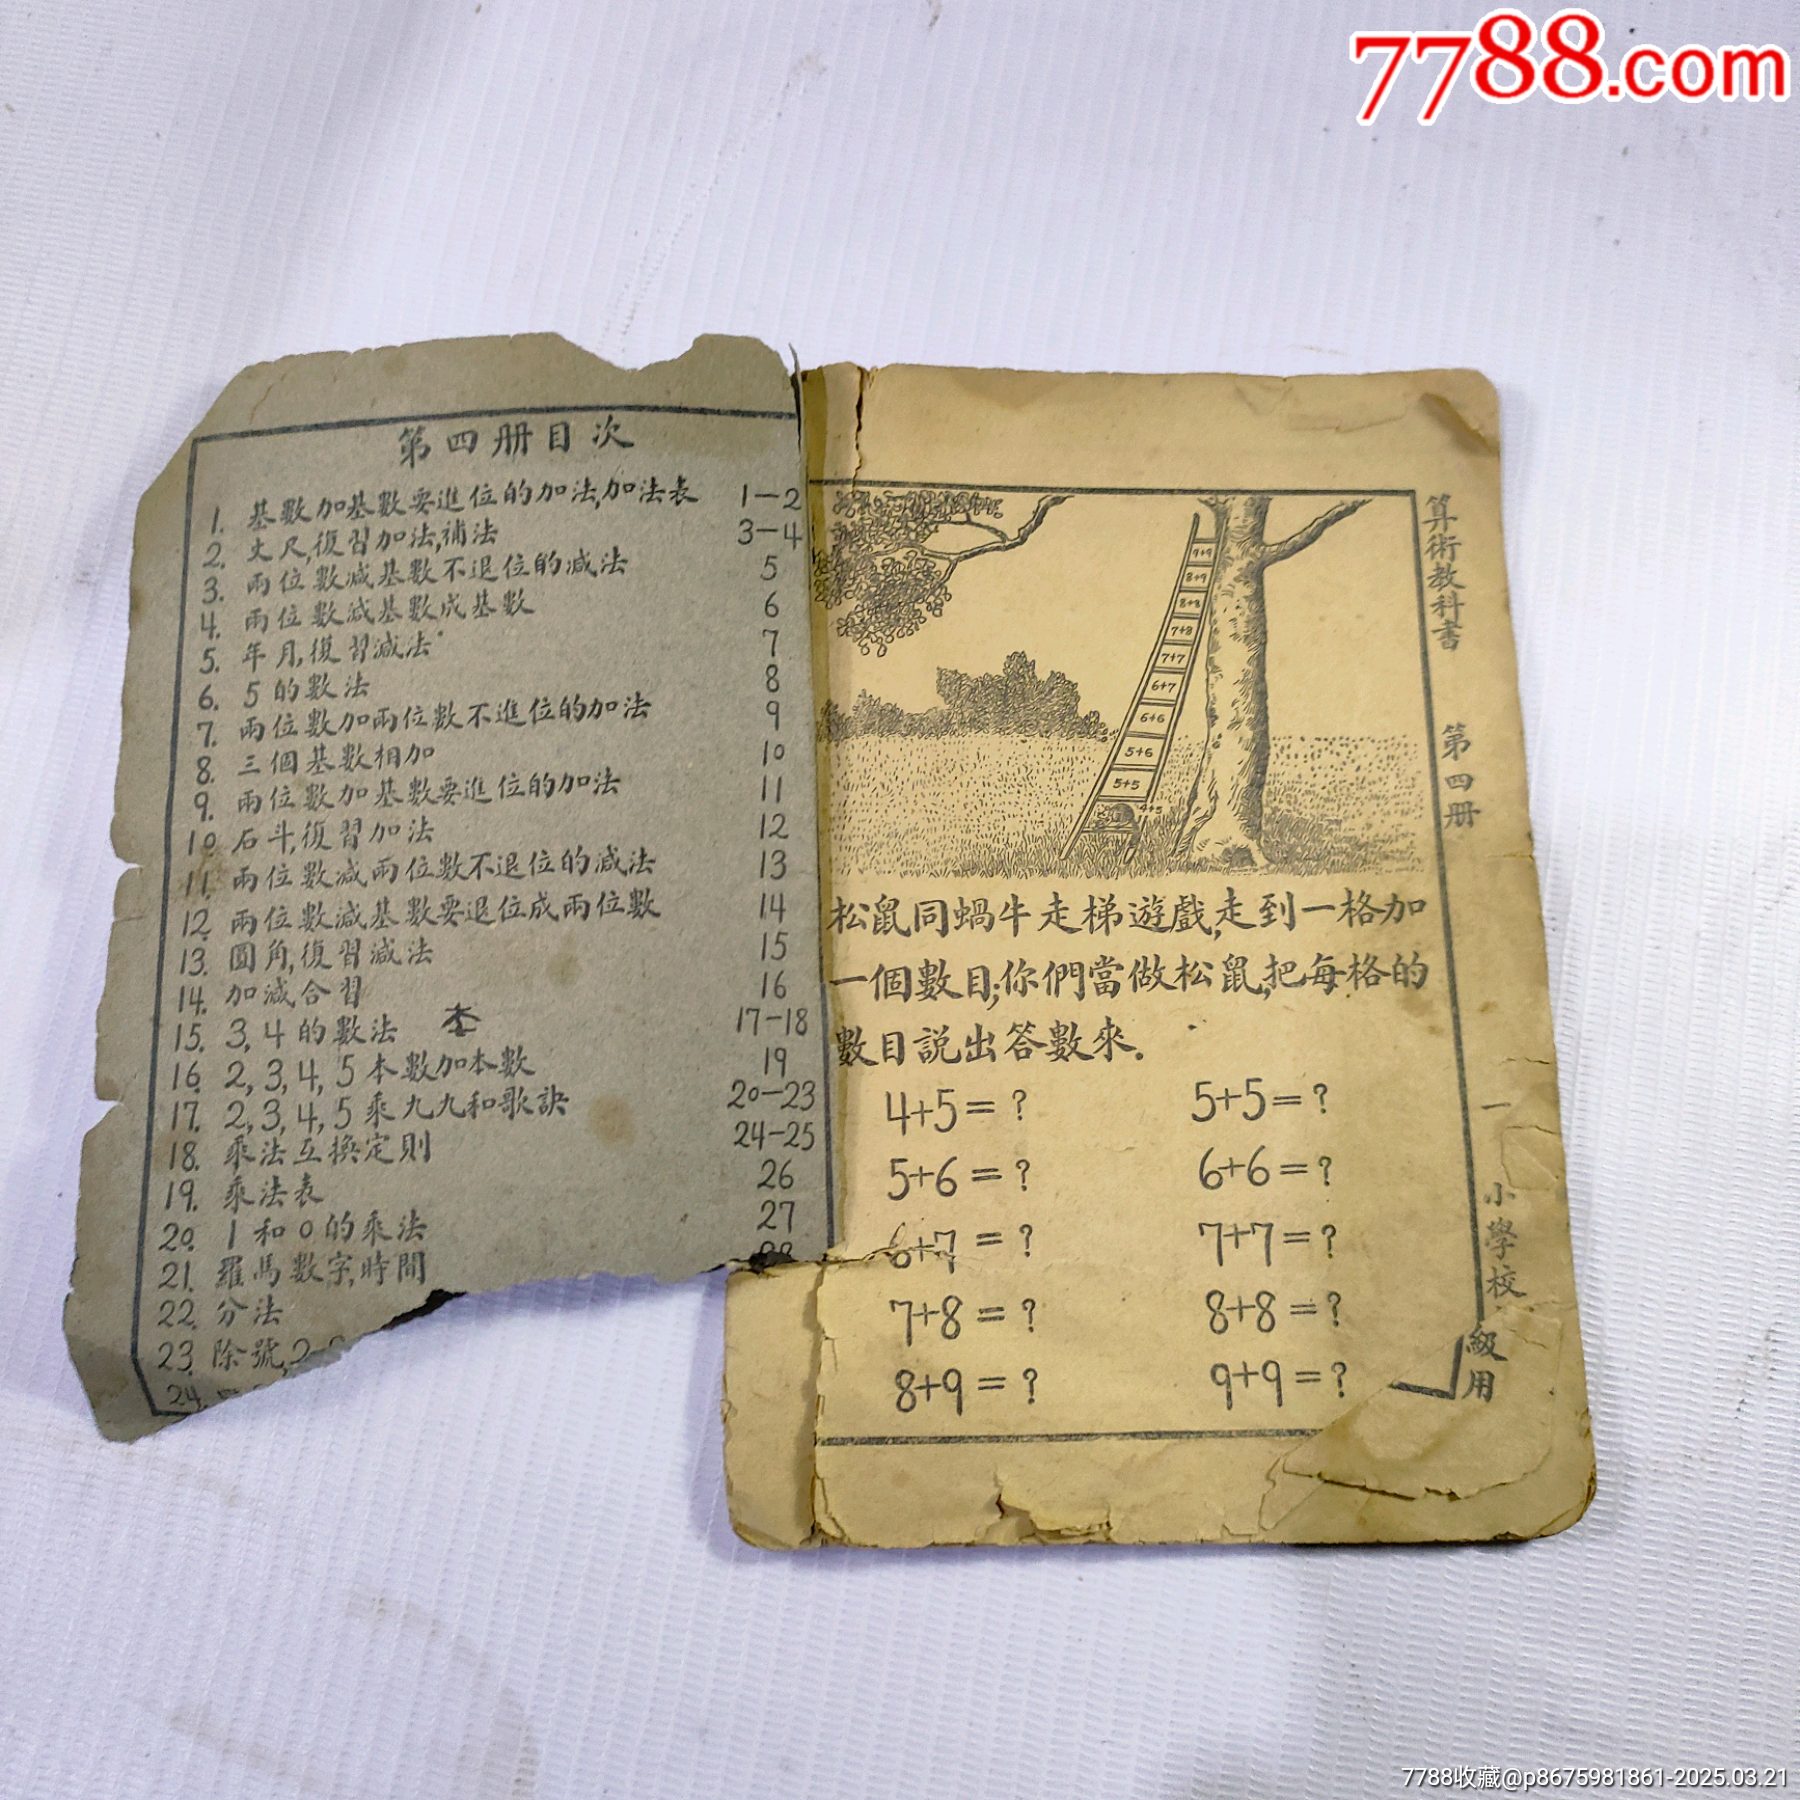 7788.com
第四册目次
1. 基數加基數要進位的加法,加法表 1—2
2. 丈尺,復習加法,補法 3—4
3. 兩位數減基數不退位的減法 5
4. 兩位數減基數成基數 6
5. 年月,復習減法 7
6. 5的數法 8
7. 兩位數加兩位數不進位的加法 9
8. 三個基數相加 10
9. 兩位數加基數要進位的加法 11
10. 石斗,復習加法 12
11. 兩位數減兩位數不退位的減法 13
12. 兩位數減基數要退位成兩位數 14
13. 圓角,復習減法 15
14. 加減合習 16
15. 3,4的數法 本 17—18
16. 2,3,4,5本數加本數 19
17. 2,3,4,5乘九九和歌訣 20—23
18. 乘法互換定則 24—25
19. 乘法表 26
20. 1和0的乘法 27
21. 羅馬數字,時間
22. 分法
23. 除號,2
24.
9+9
8+9
8+8
7+8
7+7
6+7
6+6
5+6
5+5
4+5
松鼠同蝸牛走梯遊戲,走到一格加
一個數目;你們當做松鼠,把每格的
數目説出答數來.
4+5=? 5+5=?
5+6=? 6+6=?
6+7=? 7+7=?
7+8=? 8+8=?
8+9=? 9+9=?
算術教科書 第四册 一 小學校 級用
7788收藏@p8675981861-2025.03.21